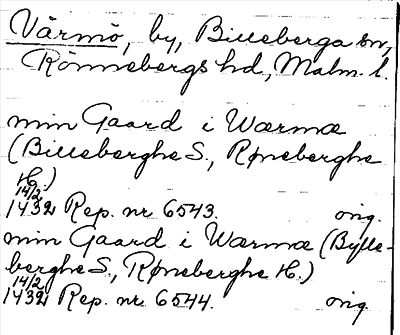 Värmö, by, Billeberga sn,
Rönnebergs hd, Malm. l.
min Gaard i Wærmæ
(Billeberghe S., Røneberghe
H.)
14/2
1432 Rep. nr 6543. orig.
min Gaard i Wærmæ (Bylle-
berghe S., Røneberghe H.)
14/2
1432 Rep. nr. 6544. orig.